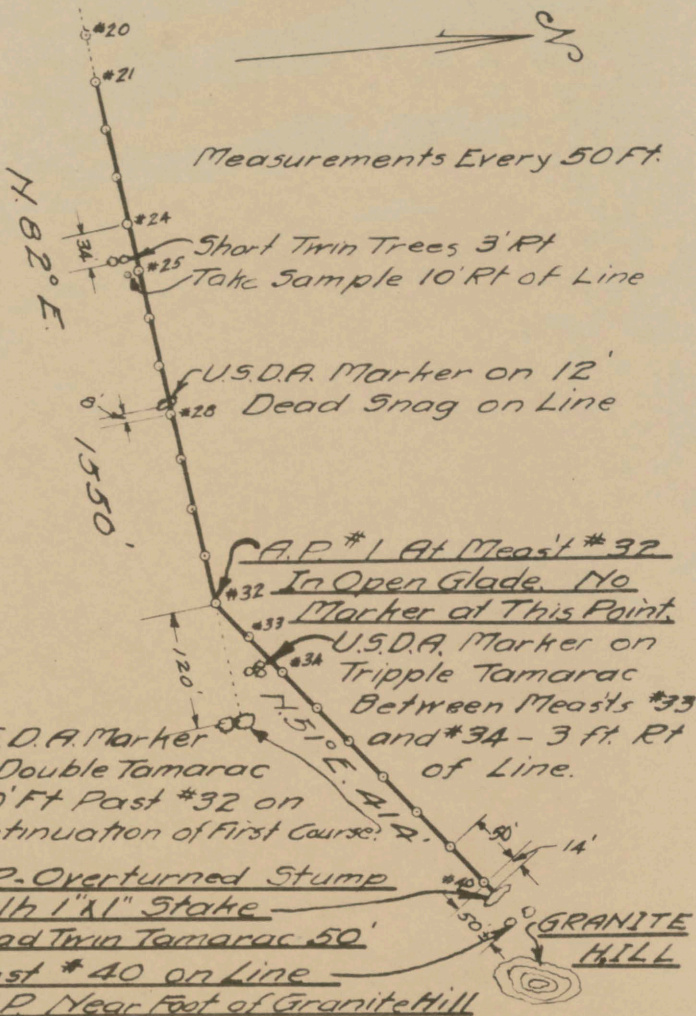 #20
#21
Measurements Every 50 Ft.
N. 82° E.
#24
34'
Short Twin Trees 3' Rt
#25
Take Sample 10' Rt of Line
U.S.D.A. Marker on 12'
Dead Snag on Line
8'
#28
1550'
A.P. #1 At Meas't #32
In Open Glade. No
Marker at This Point.
#32
#33
U.S.D.A. Marker on
#34
Tripple Tamarac
Between Meas'ts #33
and #34 - 3 ft. Rt
of Line.
120'
N. 51° E. 414.
D.A. Marker
Double Tamarac
Ft Past #32 on
tinuation of First Course.
50'
14'
P.-Overturned Stump
1"x1" Stake
#40
ad Twin Tamarac 50'
st #40 on Line
50'
GRANITE
HILL
P. Near Foot of Granite Hill